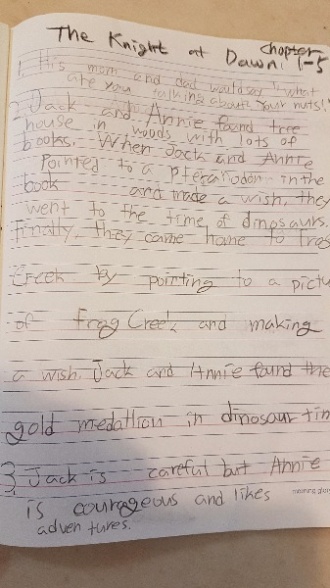 The Knight at Dawn! Chapter 1-5
1. His mom and dad would say "what
are you talking about? Your nuts!"
2. Jack and Annie found tree
house in woods with lots of
books. When Jack and Annie
Pointed to a pteranodon in the
book and made a wish, they
went to the time of dinosaurs.
Finally, they came home to Frog
Creek by pointing to a pictu
of Frog Creek and making
a wish. Jack and Annie found the
gold medallion in dinosaur tim
3. Jack is careful but Annie
is courageous and likes
adventures.